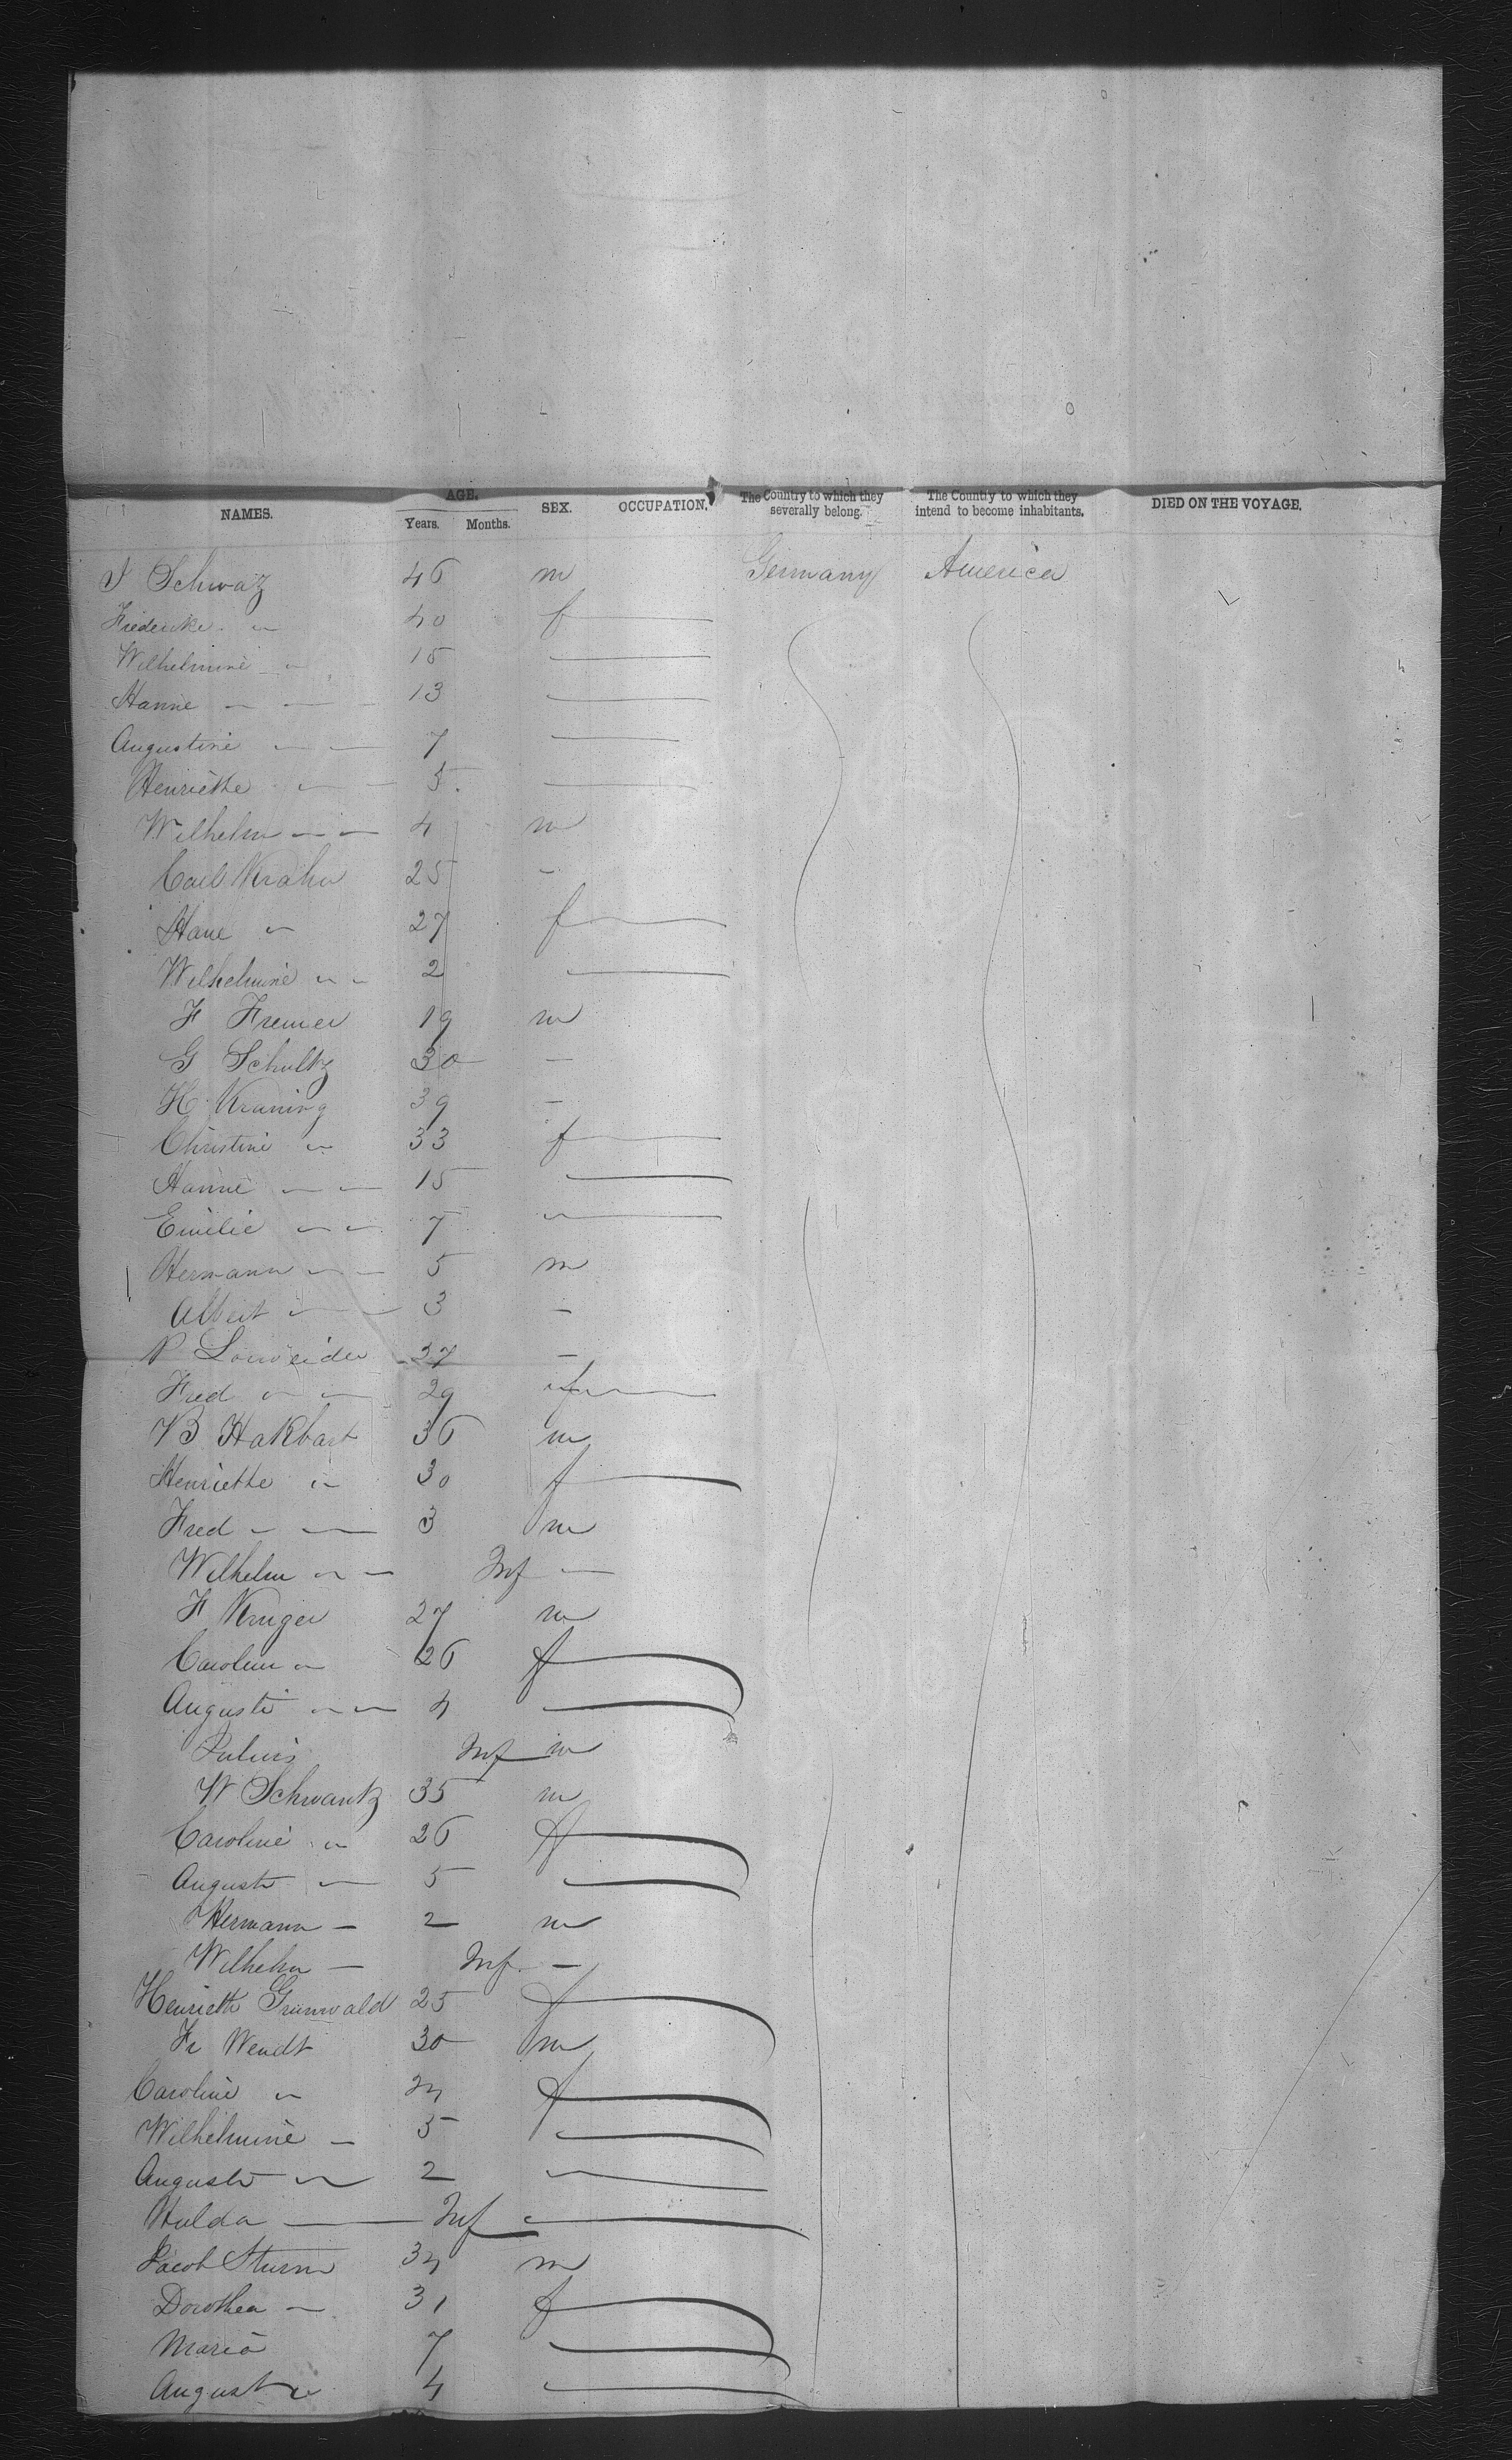 NAMES. AGE. Years. Months. SEX. OCCUPATION. The Country to which they severally belong. The Country to which they intend to become inhabitants. DIED ON THE VOYAGE.
Schwaz 46 m Germany America
Friederike " 40 f
Wilhelmine " 15
Hanne " 13
Augustine " 7
Henriette " 5
Wilhelm " 4 m
Carl Krahn 25 -
Hane " 27 f
Wilhelmine " 2
F Fremer 19 m
G Schultz 30 -
H Kraning 39 -
Christine " 33 f
Hanne " 15
Emilie " 7
Hermann " 5 m
Albert " 3 -
37 -
Fred " 29 f
Hakbart 36 m
Henriette " 30 f
Fred " 3 m
Wilhelm " Inf -
F Kruger 27 m
Caroline " 26 f
Auguste " 4
Julius Inf m
W Schwantz 35 m
Caroline " 26 f
Auguste " 5
Hermann - 2 m
Wilhelm - Inf -
Henriette Grunwald 25 f
Fr Wendt 30 m
Caroline " 24 f
Wilhelmine - 5
Auguste " 2
Hulda - Inf
Jacob Sturm 34 m
Dorothea - 31 f
Maria 7
Auguste 4